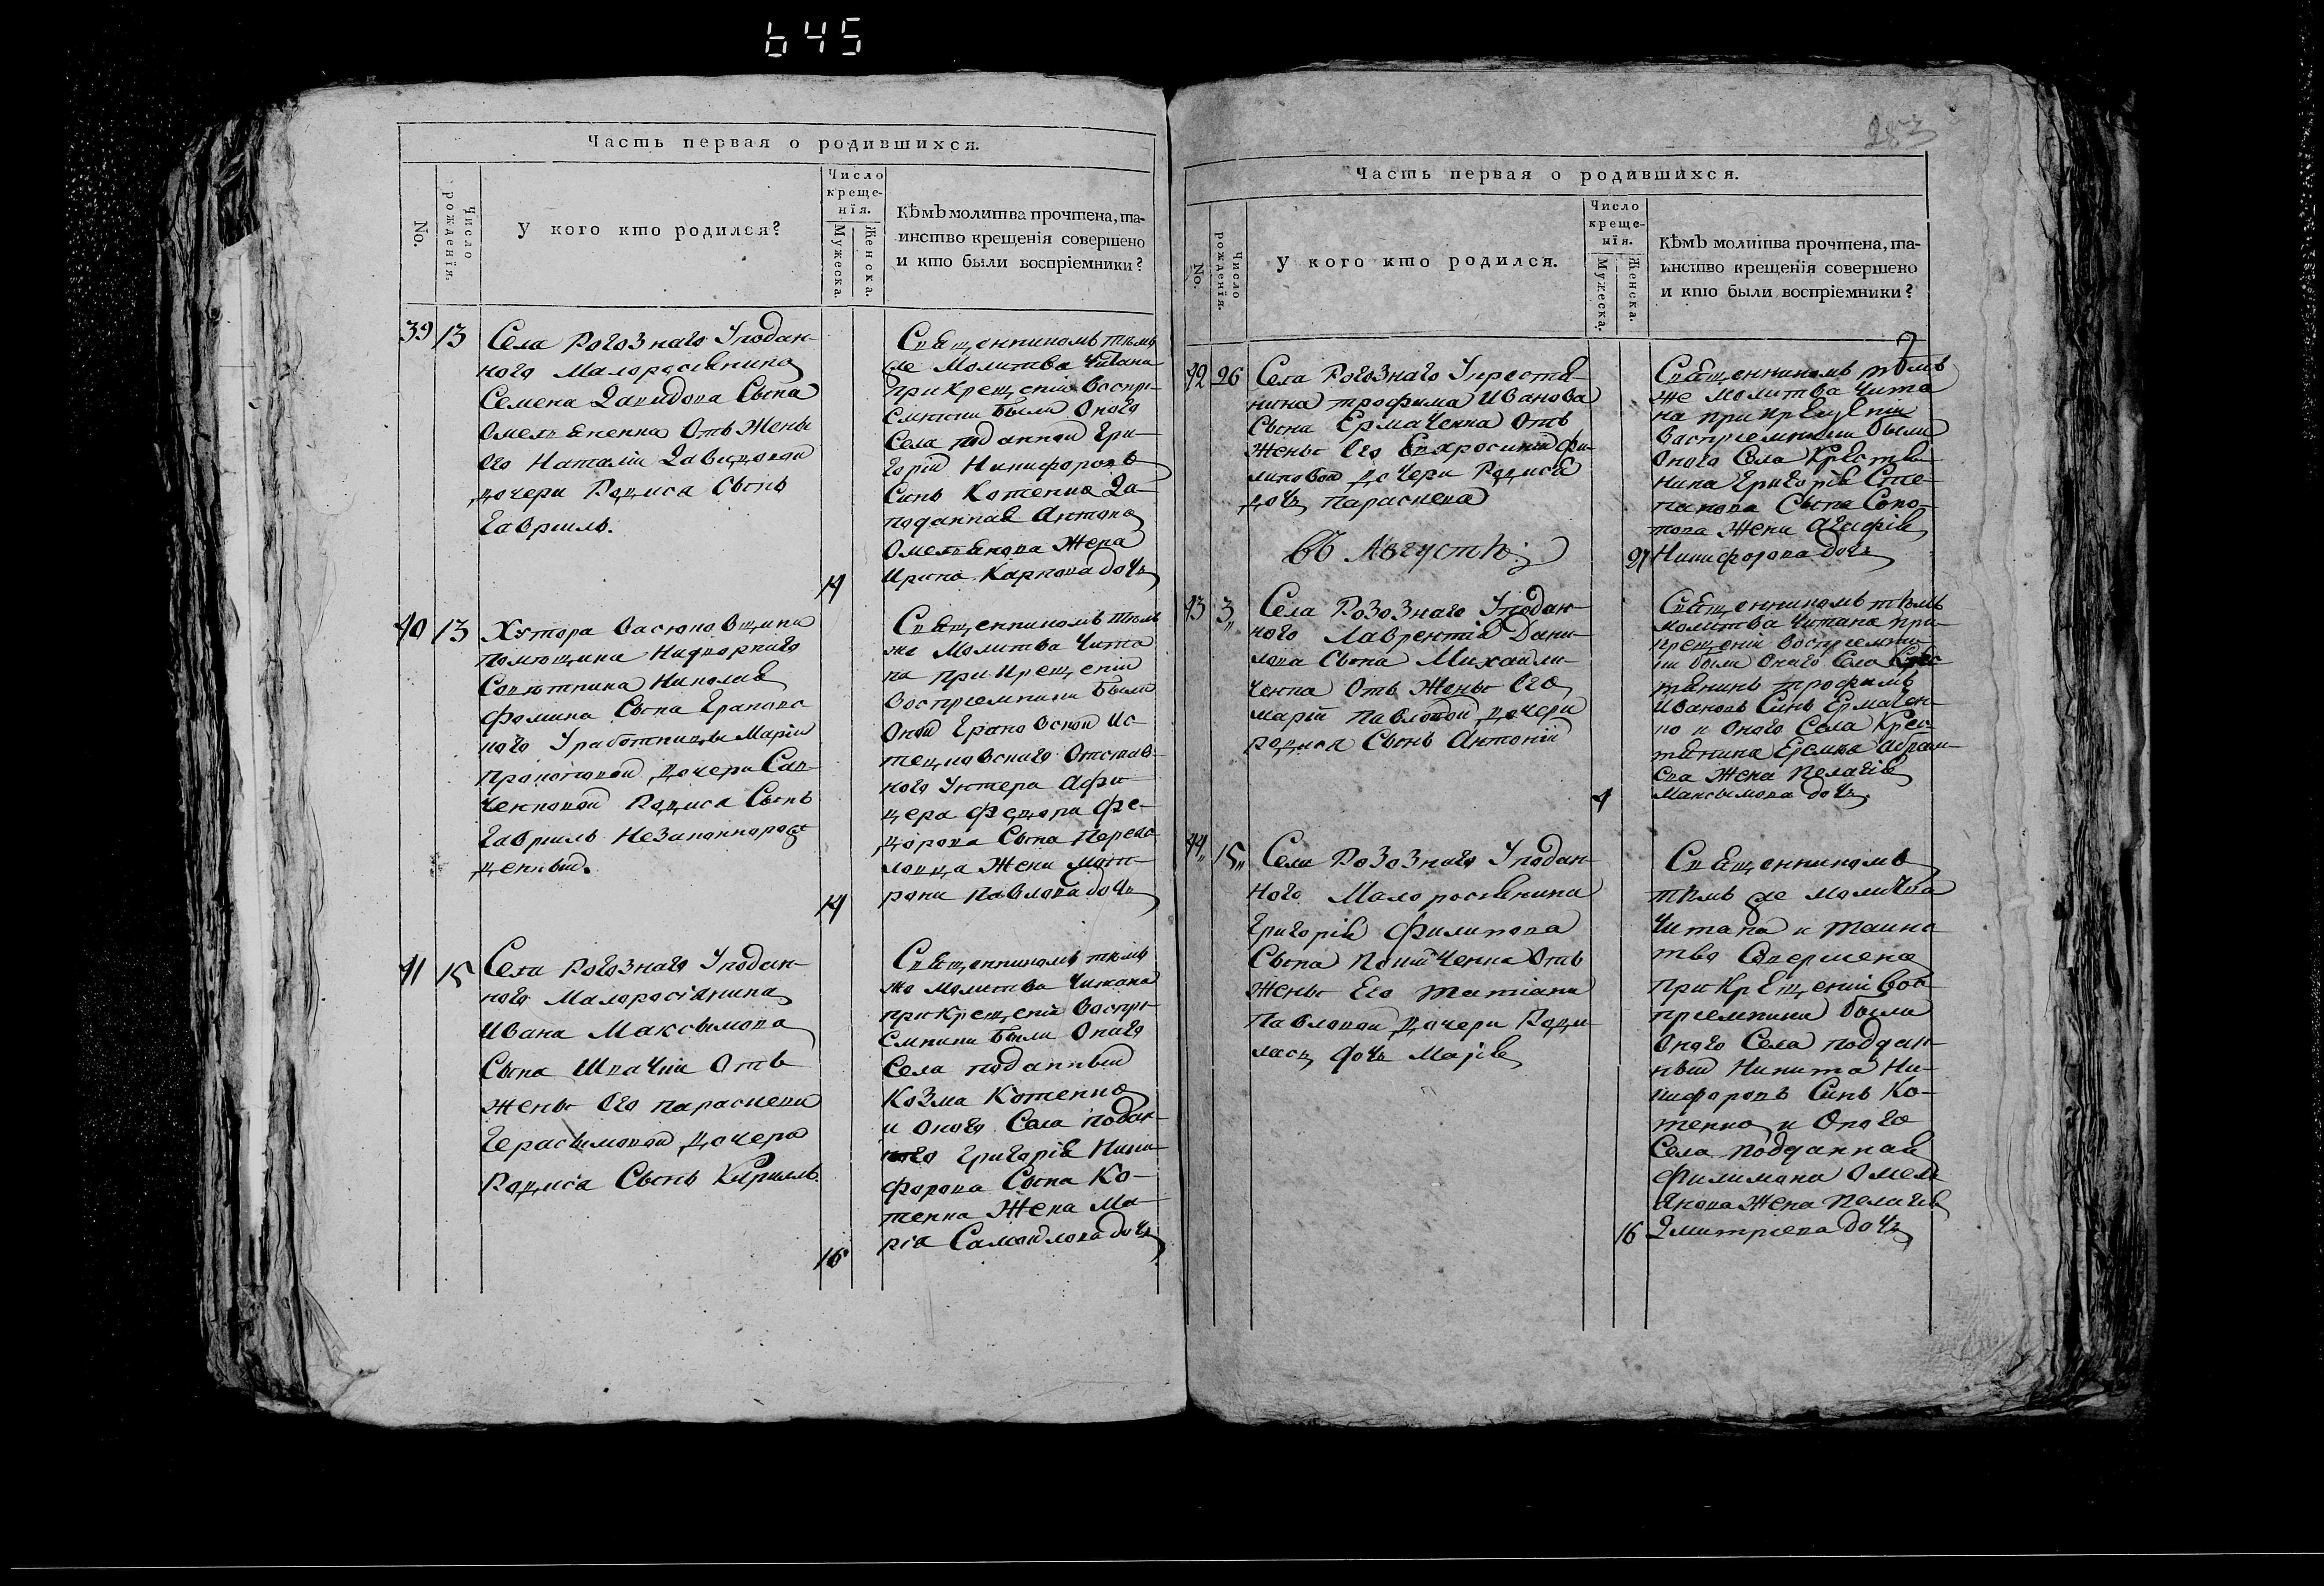 645
Часть первая о родившихся.
No.
Число рожденія.
У кого кто родился?
Число креще-нія.
Мужеска.
Женска.
Кѣмъ молитва прочтена, та-
инство крещенія совершено
и кто были воспріемники?
39 13
Села Рогознаго У подан-
ного Малоросіянина
Семена Давидова Сына
Омеляненка Отъ Жены
Его Наталіи Давидовой
дочери Родися Сынъ
Гавріилъ.
14
Священникомъ тѣмъ
же Молитва Читана
при Крещеніи Воспрі-
емники Были Оного
Села поданной Гри-
горій Никифоровъ
Синъ Котенко Да
поданная Антона
Омелянова Жена
Ирина Карпова дочь
40 13
Хутора Васюковщини
помѣщика Надворнаго
Совѣтника Николая
Фомина Сына
ного У работницы Маріи
Прокоповой дочери Сав-
ченковой Родися Сынъ
Гавріилъ Незаконнорож
денный.
14
Священникомъ тѣмъ
же Молитва Чита
на при Крещеніи
Воспріемники Были
Оной
Отстав-
ного Унтера Афи-
цера Федора Фе-
дорова Сына
Жена Мот-
рона Павлова дочь
41 15
Села Рогознаго У подан-
ного Малоросіянина
Ивана Максымова
Сына Шпачки Отъ
Жены Его параскеви
Герасымовой дочери
Родися Сынъ Кирилъ.
16
Священникомъ тѣмъ
же Молитва Читана
при Крещеніи Воспрі-
емники Были Оного
Села поданный
Козма Котенко
и Оного Села подан-
ного Григорія Ники-
форова Сына Ко-
тенка Жена Ма-
рія Самойлова дочь
283
Часть первая о родившихся.
No.
Число рожденія.
У кого кто родился.
Число креще-нія.
Мужеска.
Женска.
Кѣмъ молитва прочтена, та-
инство крещенія совершено
и кто были воспріемники?
42 26
Села Рогознаго У крестя-
нина трофима Иванова
Сына Ермаченка Отъ
Жены Его Евфросиніи Фи-
липовой дочери Родися
дочь параскева
27
Священникомъ тѣмъ
же молитва Чита
на при крещеніи
Воспріемники были
Оного Села Крестя-
нина Григорія Сте-
панова Сына Соко-
това Жена Агафія
Никифорова дочь
Въ Августѣ
43 3
Села Розознаго У подан-
ного Лаврентія Дани-
лова Сына Михайли-
ченка Отъ Жены Его
маріи Павловой дочери
родися Сынъ Антоній
4
Священникомъ тѣмъ
молитва Читана при
крещеніи воспріемни-
ки были Оного Села Крес
тянинъ трофимъ
Ивановъ Синъ Ермачен-
ко и Оного Села Крес-
тянина Еремія Абрам-
ова Жена Пелагія
Максымова дочь.
44 15
Села Розознаго У подан-
ного Малоросіянина
Григорія Филипова
Сына Отъ
Жены Его Татіани
Павловой дочери Роди-
лась дочь Марія
16
Священникомъ
тѣмъ же молитва
Читана и таинс
тво Совершено
при Крещеніи Вос-
пріемники были
Оного Села поддан-
ный Никита Ни-
кифоровъ Синъ Ко-
тенко и Оного
Села подданная
Филимона Омел-
янова Жена Пелагія
Дмитріева дочь